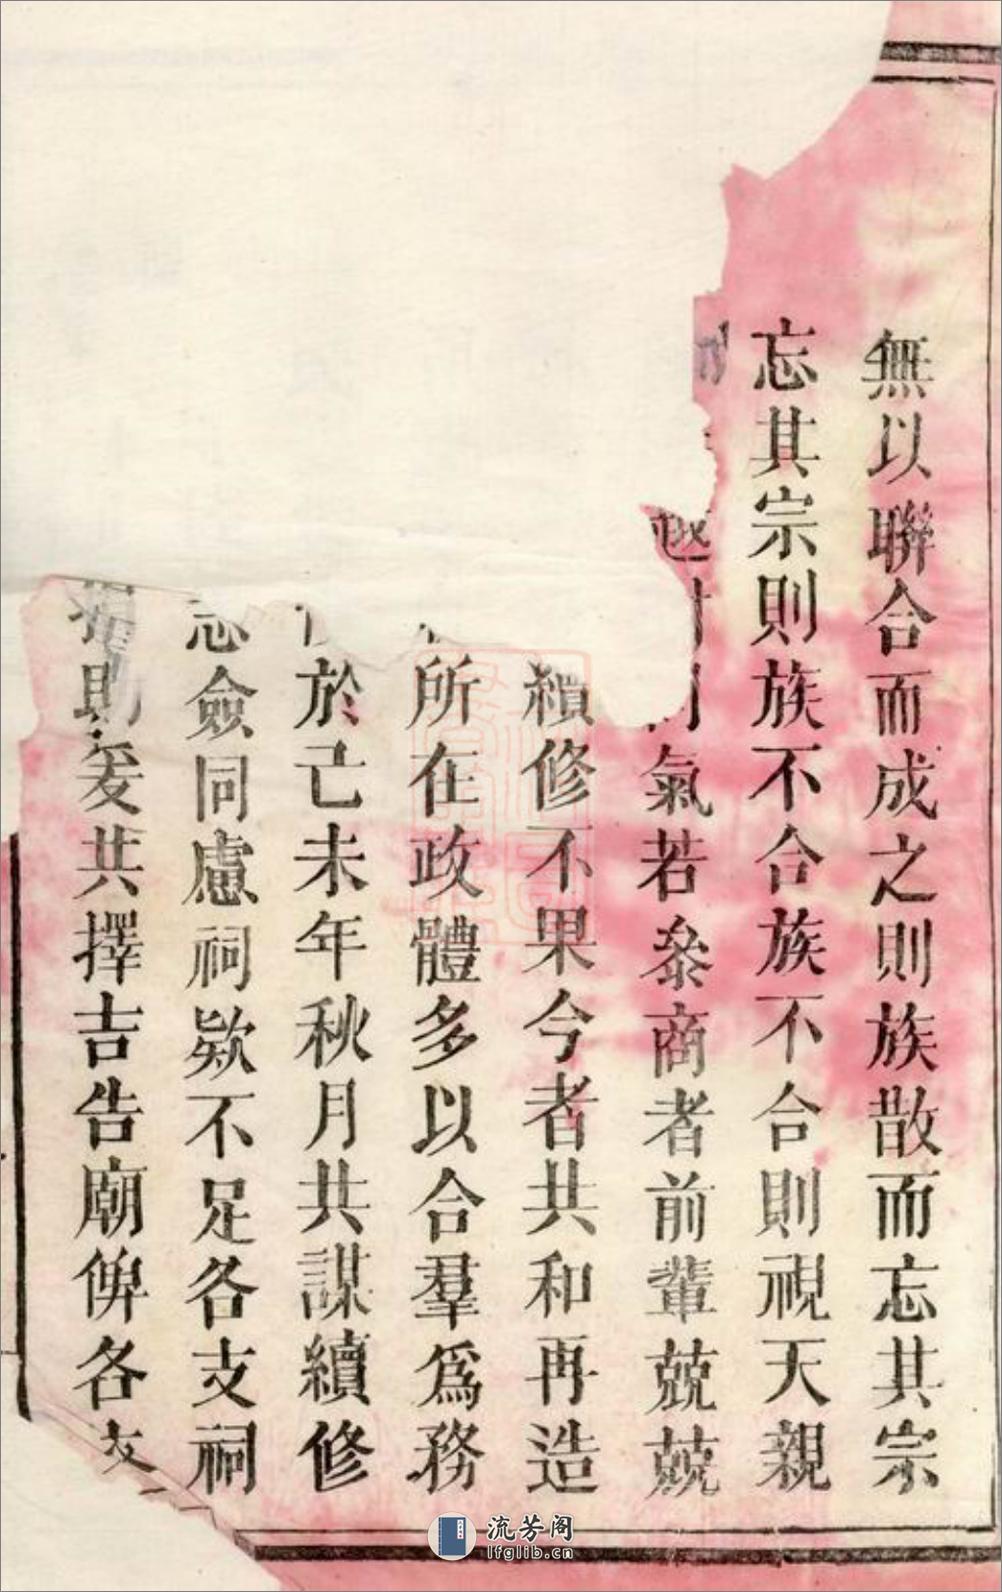 無以聯合而成之則族散而忘其宗
忘其宗則族不合族不合則視天親
越氣若叅商者前輩兢兢
續修不果今者共和再造
所在政體多以合羣爲務
於己未年秋月共謀續修
忘僉同慮祠欵不足各支祠
捐助爰共擇吉告廟俾各支
流芳阁
lfglib.cn